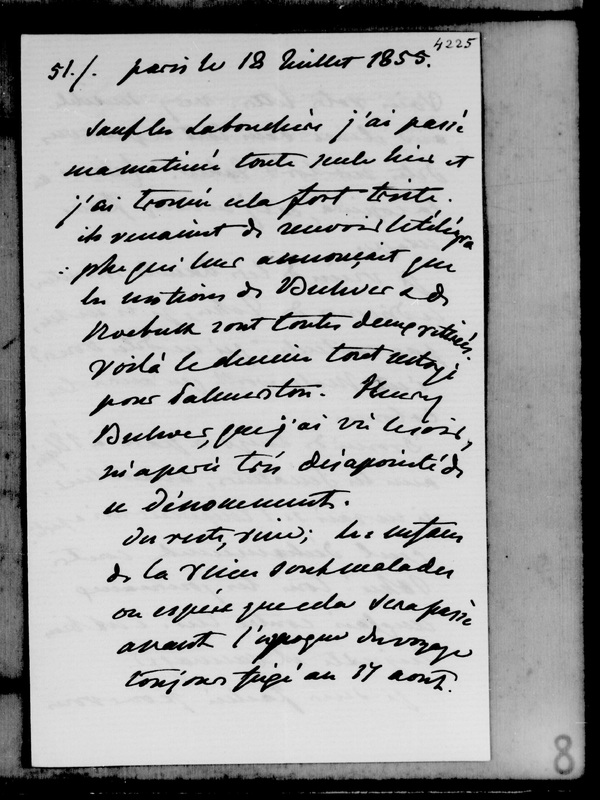 4225
51./. paris le 18 Juillet 1855.
sauf les Labouchère j'ai passé
ma matinée toute seule hier et
j'ai trouvé cela fort triste.
ils venaient de recevoir le télégra
phe qui leur annonçait que
les motions de Bulwer & de
Roebuck sont toutes deux retirées.
voilà le chemin tout nettoyé
pour Palmerston. Henry
Bulwer, que j'ai vu le soir,
m'a paru très désapointé de
ce dénouement.
du reste, rien; les enfans
de la reine sont malades
on espère que cela sera passé
avant l'époque du voyage
toujours fixé au 17 août.
8